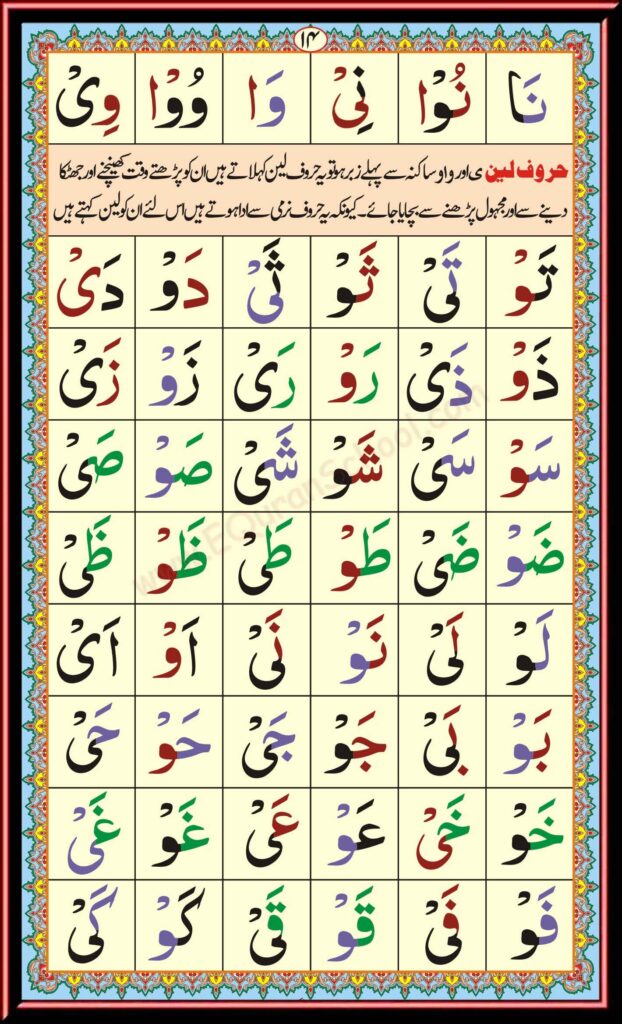 ۱۴
نَا نُوْا نِیْ وَا وُوْا وِیْ
حروف لین ی اور واو ساکنہ سے پہلے زبر ہو تو یہ حروف لین کہلاتے ہیں ان کو پڑھتے وقت کھینچنے اور جھٹکا
دینے سے اور مجہول پڑھنے سے بچایا جائے۔ کیونکہ یہ حروف نرمی سے ادا ہوتے ہیں اس لئے ان کو لین کہتے ہیں
تَوْ تَیْ ثَوْ ثَیْ دَوْ دَیْ
ذَوْ ذَیْ رَوْ رَیْ زَوْ زَیْ
سَوْ سَیْ شَوْ شَیْ صَوْ صَیْ
ضَوْ ضَیْ طَوْ طَیْ ظَوْ ظَیْ
لَوْ لَیْ نَوْ نَیْ اَوْ اَیْ
بَوْ بَیْ جَوْ جَیْ حَوْ حَیْ
خَوْ خَیْ عَوْ عَیْ غَوْ غَیْ
فَوْ فَیْ قَوْ قَیْ کَوْ کَیْ
www.EQuranSchool.com